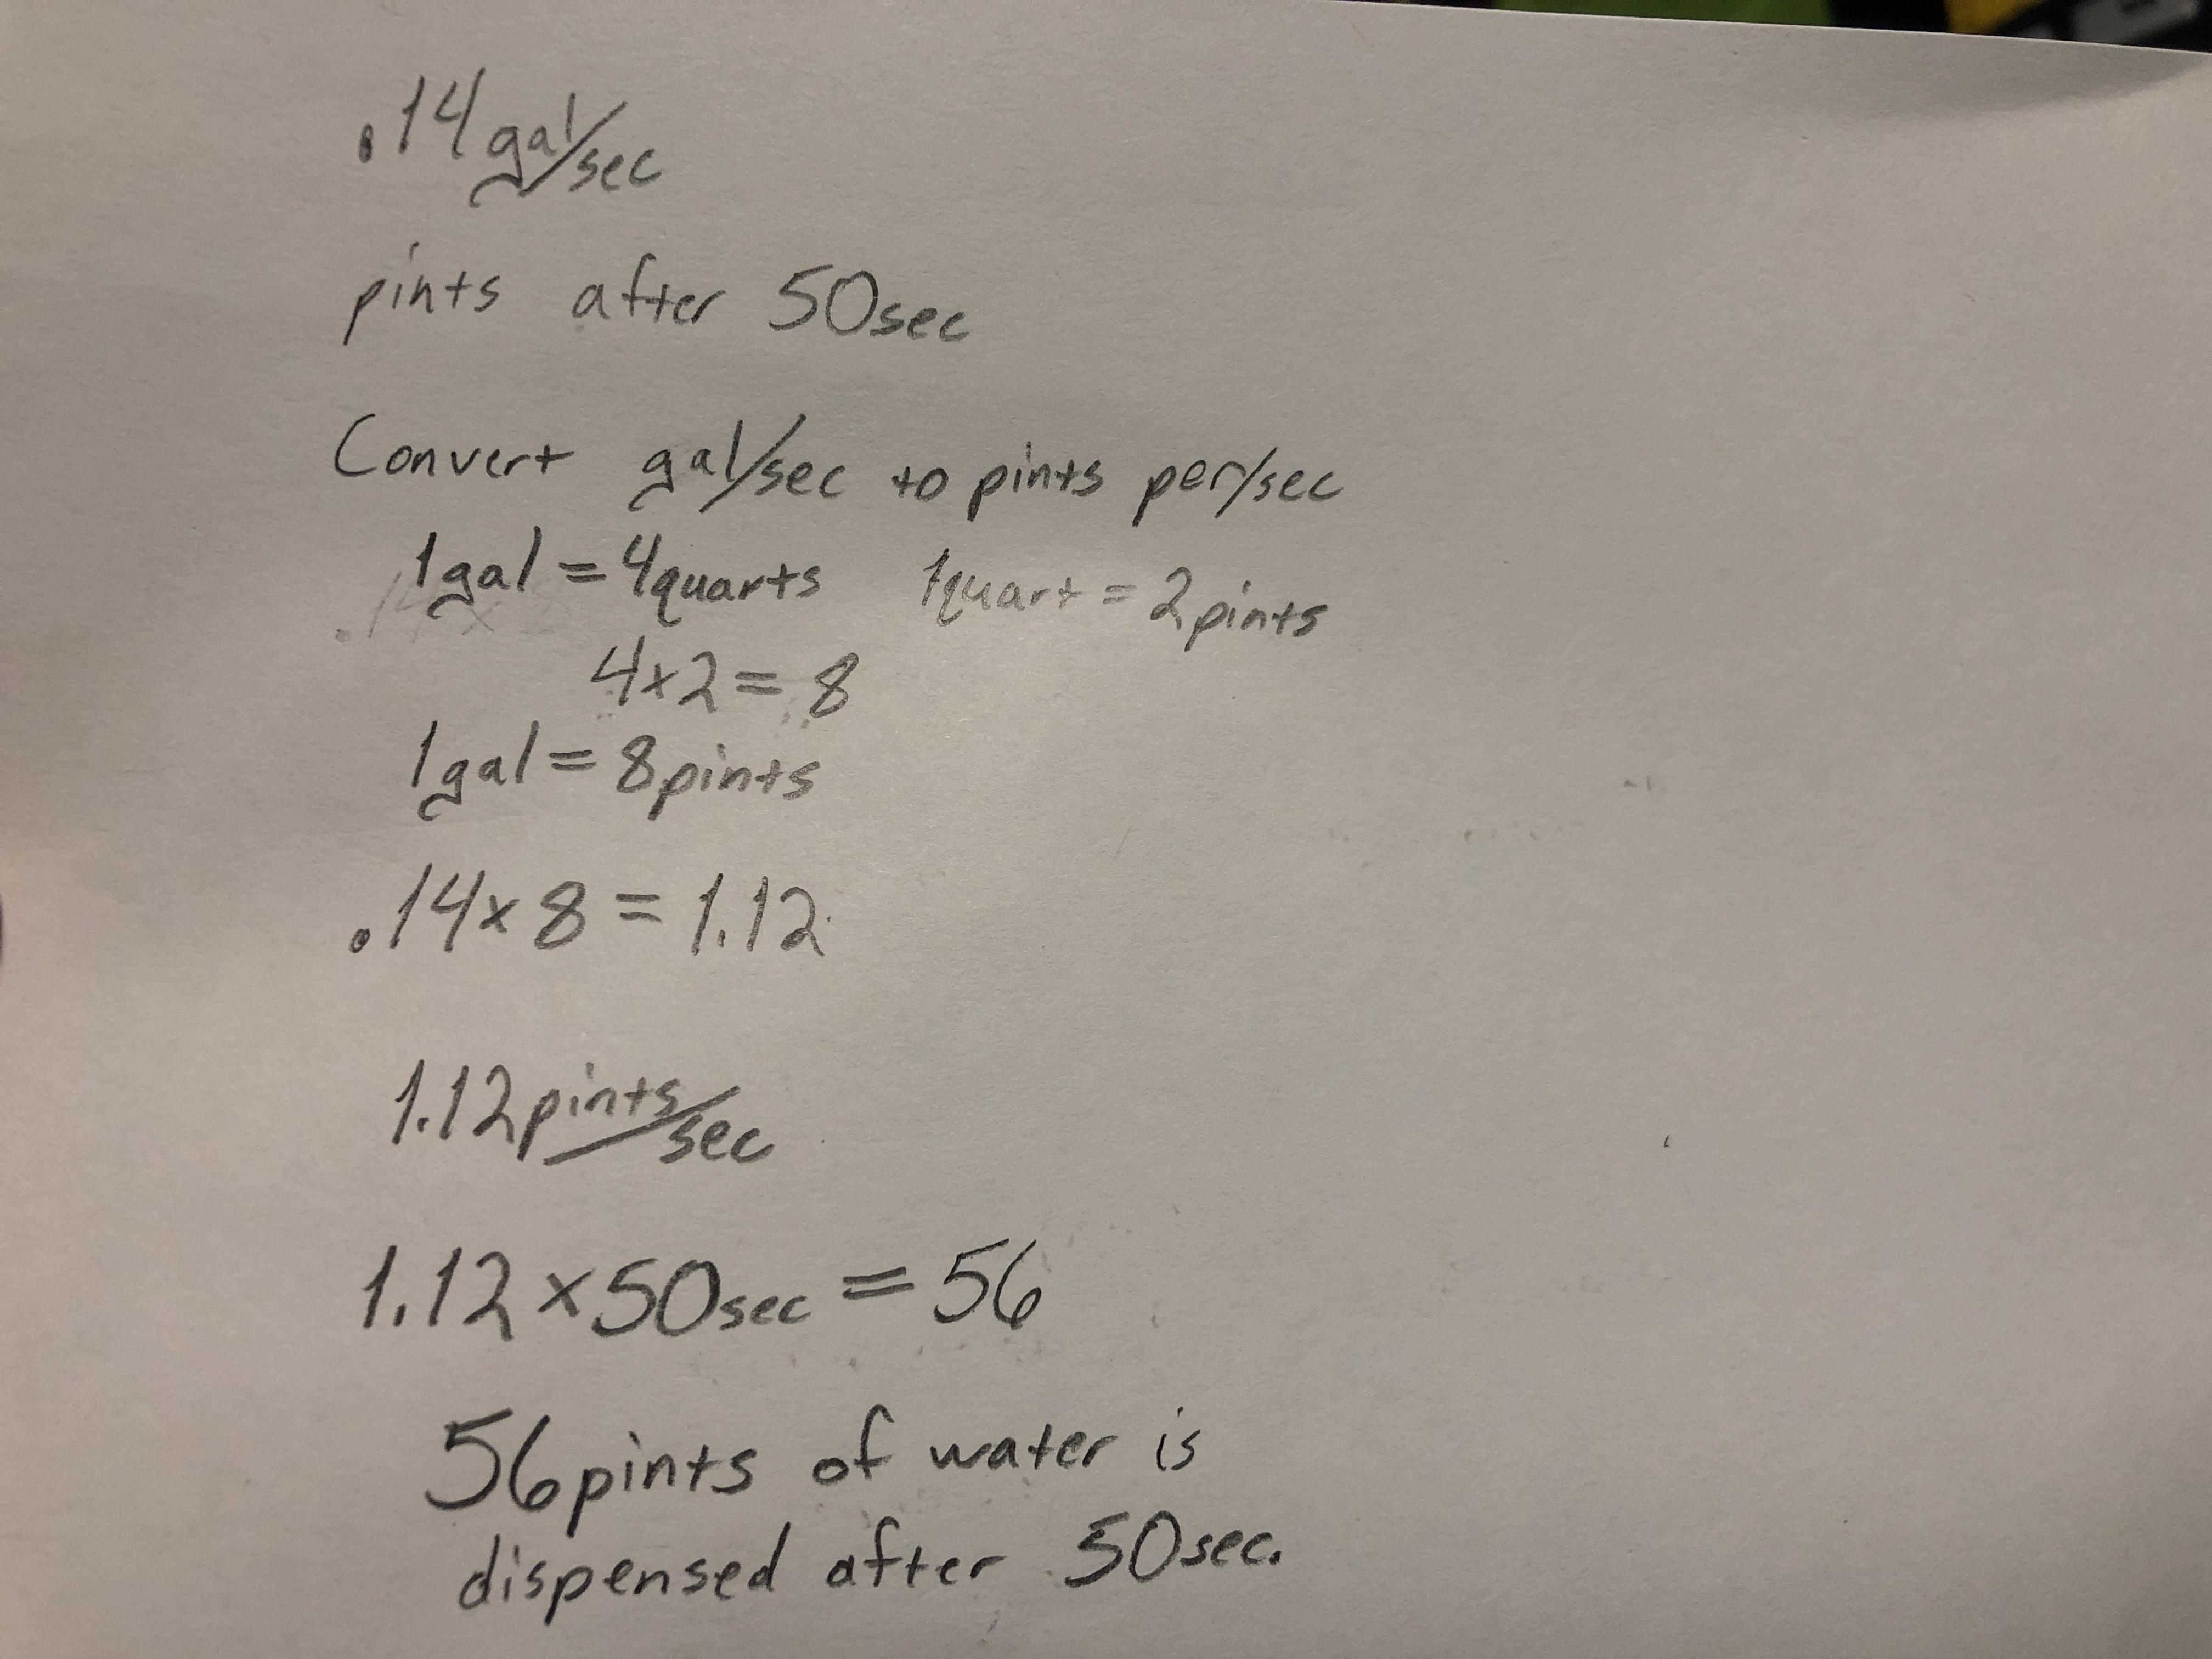 .14 gal/sec
pints after 50sec
Convert gal/sec to pints per/sec
1gal = 4quarts 1quart = 2pints
.14 x
4x2 = 8
1gal = 8pints
.14 x 8 = 1.12
1.12 pints/sec
1.12 x 50sec = 56
56 pints of water is
dispensed after 50sec.